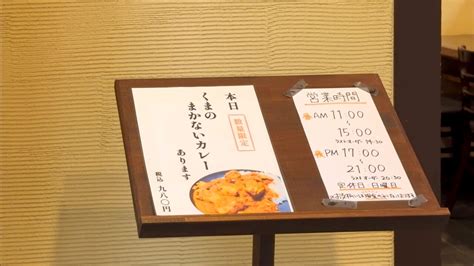 本日
数量限定
くまの
まかないカレー
あります
税込 九八〇円
営業時間
AM 11:00
~
15:00
ラストオーダー 14:30
PM 17:00
~
21:00
ラストオーダー 20:30
定休日 日曜日